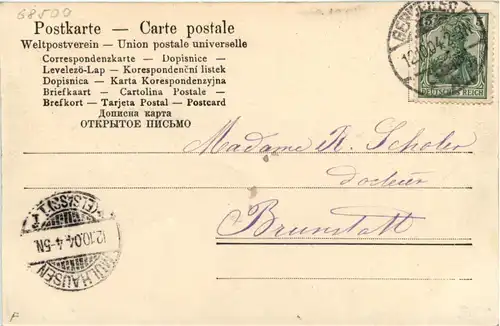 68500
Postkarte — Carte postale
Weltpostverein — Union postale universelle
Correspondenzkarte — Dopisnice —
Levelező-Lap — Korespondenční listek
Dopisnica — Karta Korespondenzyjna
Briefkaart — Cartolina Postale —
Brefkort — Tarjeta Postal — Postcard
Дописна карта
ОТКРЫТОЕ ПИСЬМО
GEBWEILER
12.10.04
DEUTSCHES REICH
Madame K. Scholer
docteur
Brunstatt
(ELSASS) 1
12.10.04. 4-5N
MÜLHAUSEN